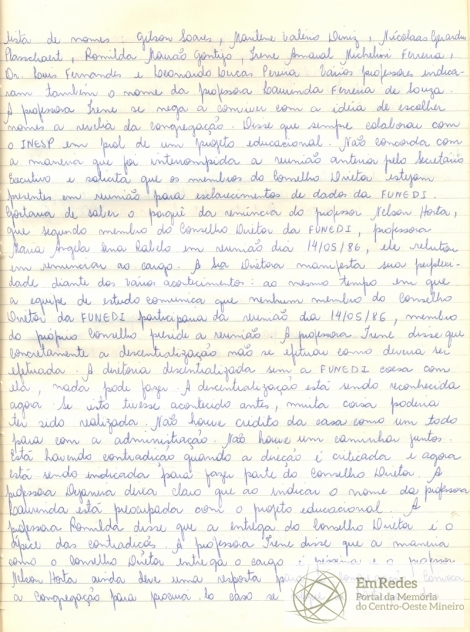 lista de nomes: Gelson Soares, Marlene Valério Diniz, Nicolaas Gerardus
Plasschaert, Romilda Mourão Gontijo, Irene Amaral Michelini Ferreira,
Dr. Luis Fernandes e Leonardo Lucas Pereira. Vários professores indica-
ram também o nome da professora Laurinda Ferreira de Souza.
A professora Irene se nega a conviver com a idéia de escolher
nomes a revelia da congregação. Disse que sempre colaborou com
o INESP em prol de um projeto educacional. Não concorda com
a maneira que foi interrompida a reunião anterior pelo Secretário
Executivo e solicita que os membros do Conselho Diretor estejam
presentes em reunião para esclarecimentos de dados da FUNEDI.
Gostaria de saber o porquê da renúncia do professor Nelson Horta,
que segundo membro do Conselho Diretor da FUNEDI, professora
Maria Angela Rabelo em reunião dia 14/05/86, ele relutou
em renunciar ao cargo. A Diretora manifesta sua perplexi-
dade diante dos vários acontecimentos: ao mesmo tempo em que
a equipe de estudo comunica que nenhum membro do Conselho
Diretor da FUNEDI participara da reunião dia 14/05/86, membro
do próprio Conselho preside a reunião. A professora Irene disse que
concretamente a descentralização não se efetuou como deveria ser
efetuada. A diretoria descentralizada sem a FUNEDI coesa com
ela, nada pode fazer. A descentralização está sendo reconhecida
agora. Se isto tivesse acontecido antes, muita coisa poderia
ter sido realizada. Não houve crédito da casa como um todo
para com a administração. Não houve um caminhar juntos.
Está havendo contradição quando a direção é criticada e agora
está sendo indicada para fazer parte do Conselho Diretor. A
professora Dejanira deixa claro que ao indicar o nome da professora
Laurinda está preocupada com o projeto educacional. A
professora Romilda disse que a entrega do Conselho Diretor é o
ápice das contradições. A professora Irene disse que a maneira
como o Conselho Diretor entrega o cargo é péssima e o professor
Nelson Horta ainda deve uma resposta
a congregação para procurá-lo caso se
EmRedes
Portal da Memória
do Centro-Oeste Mineiro